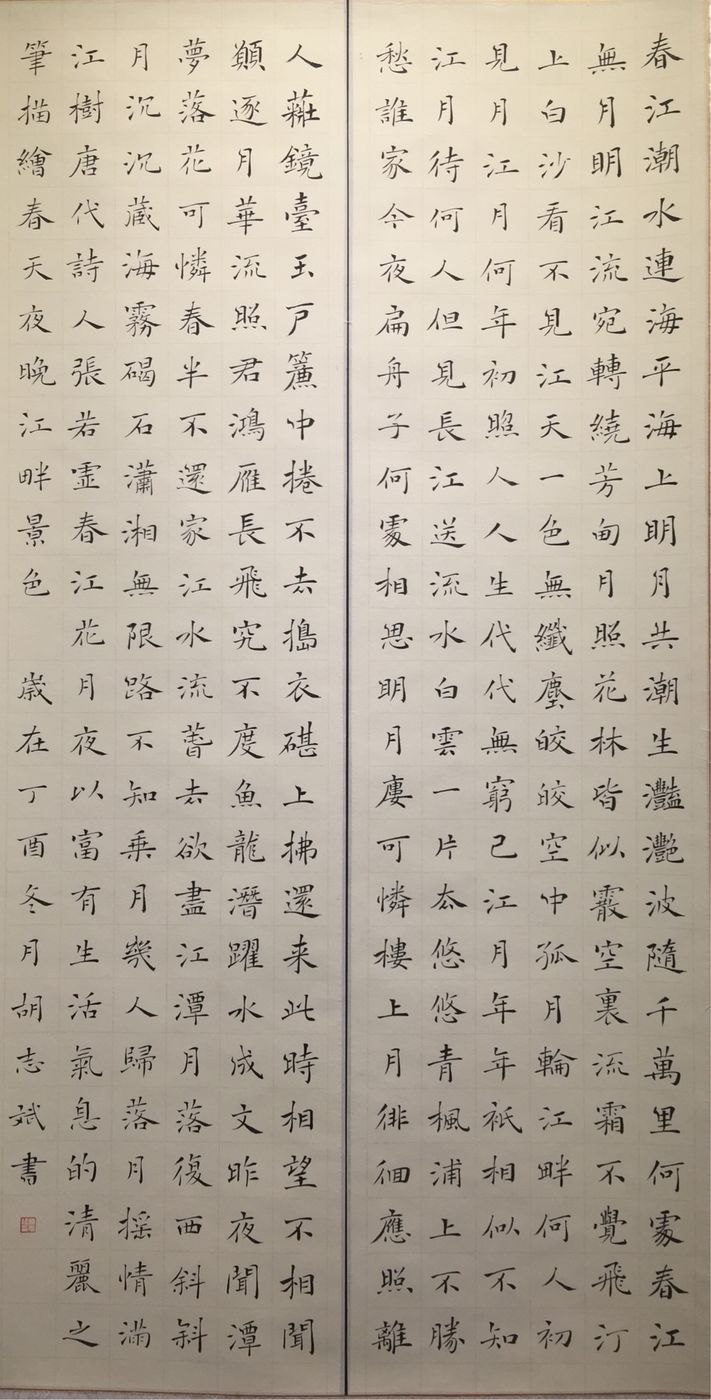 春江潮水連海平海上明月共潮生灩灧波隨千萬里何處春江
無月明江流宛轉繞芳甸月照花林皆似霰空裏流霜不覺飛汀
上白沙看不見江天一色無纖塵皎皎空中孤月輪江畔何人初
見月江月何年初照人人生代代無窮已江月年年祇相似不知
江月待何人但見長江送流水白雲一片去悠悠青楓浦上不勝
愁誰家今夜扁舟子何處相思明月廔可憐樓上月徘徊應照離
人鏡臺玉戶簾中捲不去搗衣碪上拂還来此時相望不相聞
願逐月華流照君鴻雁長飛究不度魚龍潛躍水成文昨夜聞潭
夢落花可憐春半不還家江水流萅去欲盡江潭月落復西斜斜
月沉沉藏海霧碣石瀟湘無限路不知乘月幾人歸落月摇情滿
江樹唐代詩人張若虛春江花月夜以富有生活氣息的清麗之
筆描繪春天夜晚江畔景色 歲在丁酉冬月胡志斌書